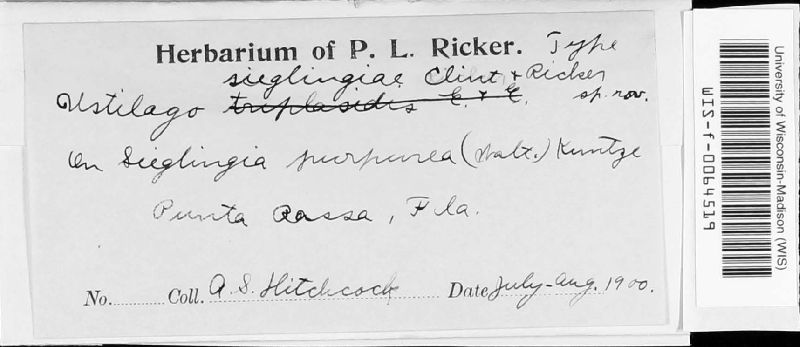 Herbarium of P. L. Ricker. Type
sieglingiae Clint & Ricker
Ustilago triplasidis E. & E. sp. nov.
On Sieglingia purpurea (Walt.) Kuntze
Punta Rassa, Fla.
No. Coll. A. S. Hitchcock Date July-Aug. 1900.
University of Wisconsin-Madison (WIS)
WIS-f-0064519